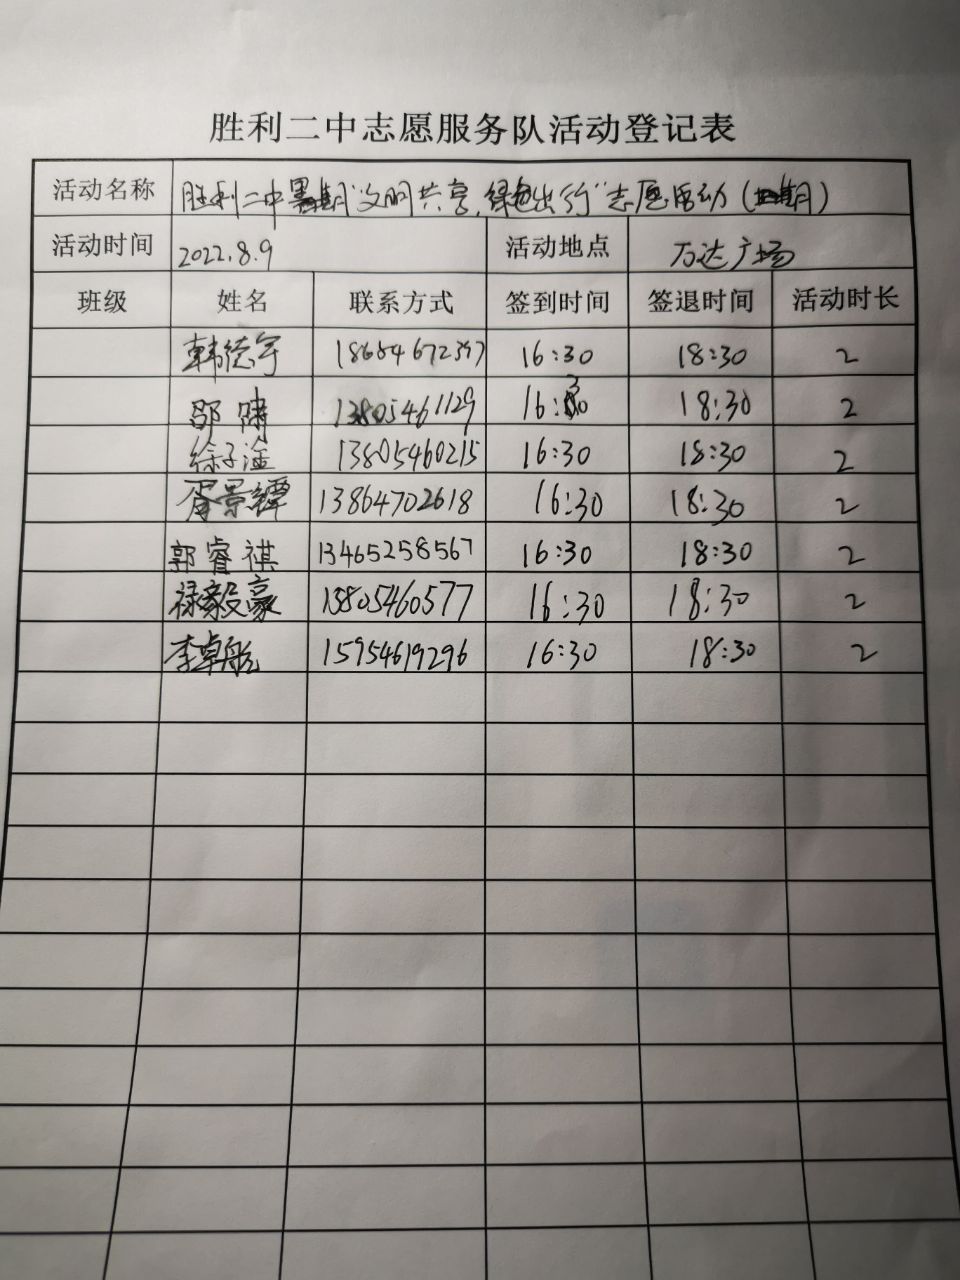 胜利二中志愿服务队活动登记表
活动名称 胜利二中暑期"文明共享,绿色出行"志愿活动(期)
活动时间 2022.8.9 活动地点 万达广场
班级 姓名 联系方式 签到时间 签退时间 活动时长
韩德宇 16:30 18:30 2
邵 13805461129 16:30 18:30 2
徐子淦 13805460215 16:30 18:30 2
胥景 13864702618 16:30 18:30 2
郭睿祺 13465258567 16:30 18:30 2
禄毅豪 13805460577 16:30 18:30 2
李卓航 15954619296 16:30 18:30 2